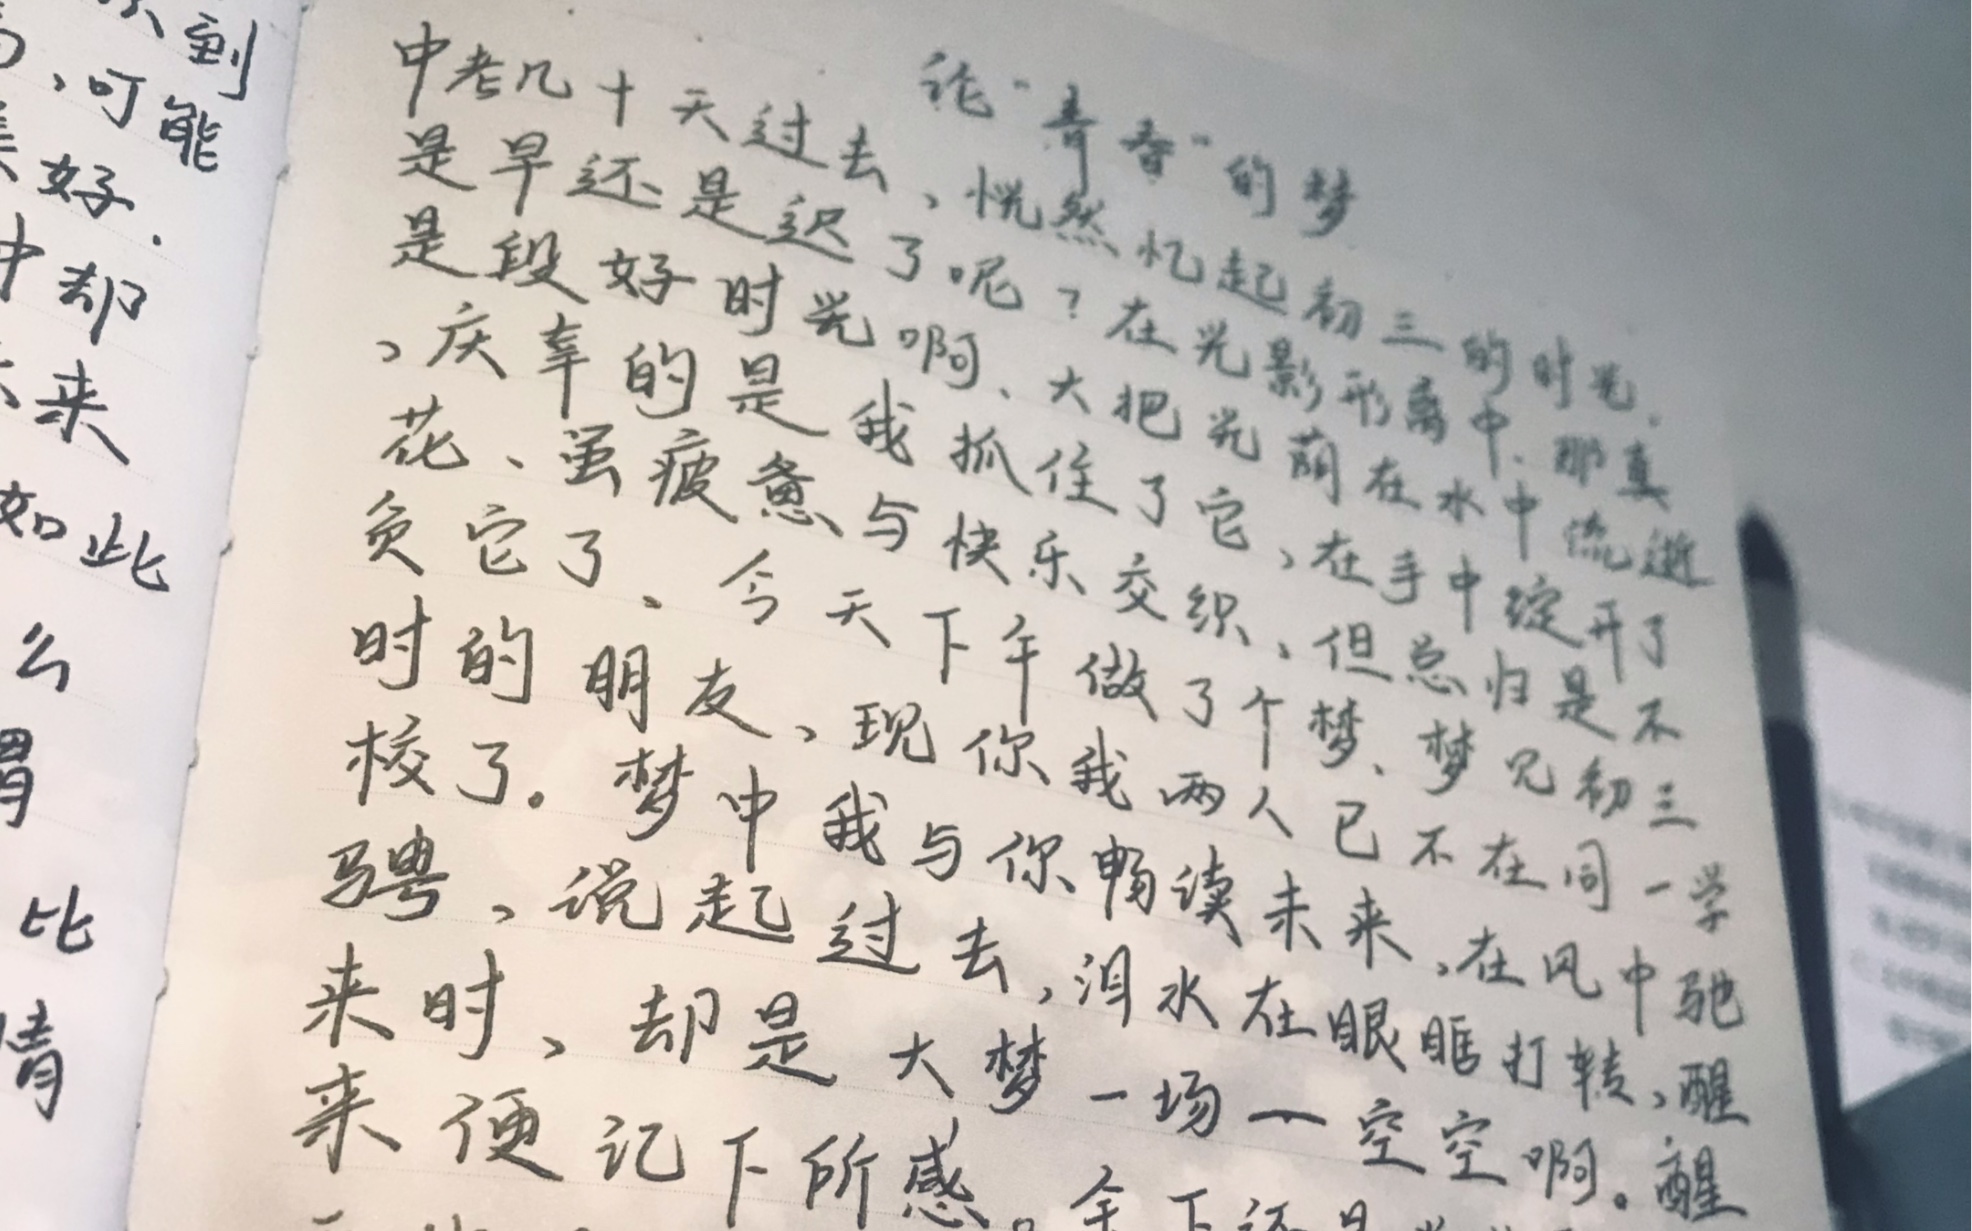 到
、可能
好.
中却
来
如此
么
比
情
论“青春”的梦
中考几十天过去、恍然忆起初三的时光.
是早还是迟了呢?在光影形离中、那真
是段好时光啊、大把光萠在水中流逝
、庆幸的是我抓住了它、在手中绽开了
花、虽疲惫与快乐交织、但总归是不
负它了、今天下午做了个梦、梦见初三
时的朋友、现你我两人已不在同一学
校了。梦中我与你畅读未来、在风中驰
骋、说起过去,泪水在眼眶打转、醒
来时、却是大梦一场一空空啊。醒
来便记下所感。余下还是